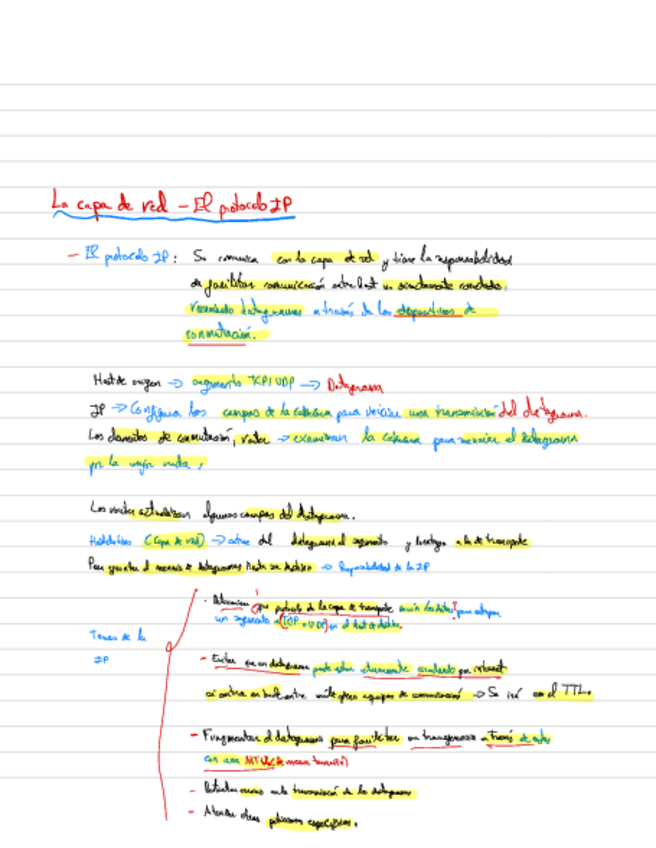 La capa de red - El protocolo IP
- El protocolo IP: Se comunica con la capa de red y tiene la responsabilidad
de facilitar comunicación entre host no directamente conectados,
reenviando datagramas a través de los dispositivos de
conmutación.
Host de origen → segmento TCP/UDP → Datagrama
IP → Configura los campos de la cabecera para iniciar una transmisión del datagrama.
Los de conmutación, router → examinan la cabecera para reenviar el datagrama
por la mejor ruta,
Los routers actualizan algunos campos del datagrama.
Host destino (Capa de red) → extrae del datagrama el segmento y lo entrega a la de transporte
Para garantizar el de datagramas hasta su destino → Responsabilidad de la IP
Tareas de la
IP
· Determinar que protocolo de la capa de transporte los datos para
un segmento (TCP o UDP) en el host destino.
- Evitar que un datagrama pueda estar eternamente circulando por internet
si entra en bucle entre múltiples equipos de comunicación → Se usa el TTL.
- Fragmentar el datagrama para facilitar su transferencia a través de redes
con una MTU de menor tamaño)
- Detectar errores en la transmisión de los datagramas
- Atender otras peticiones específicas.